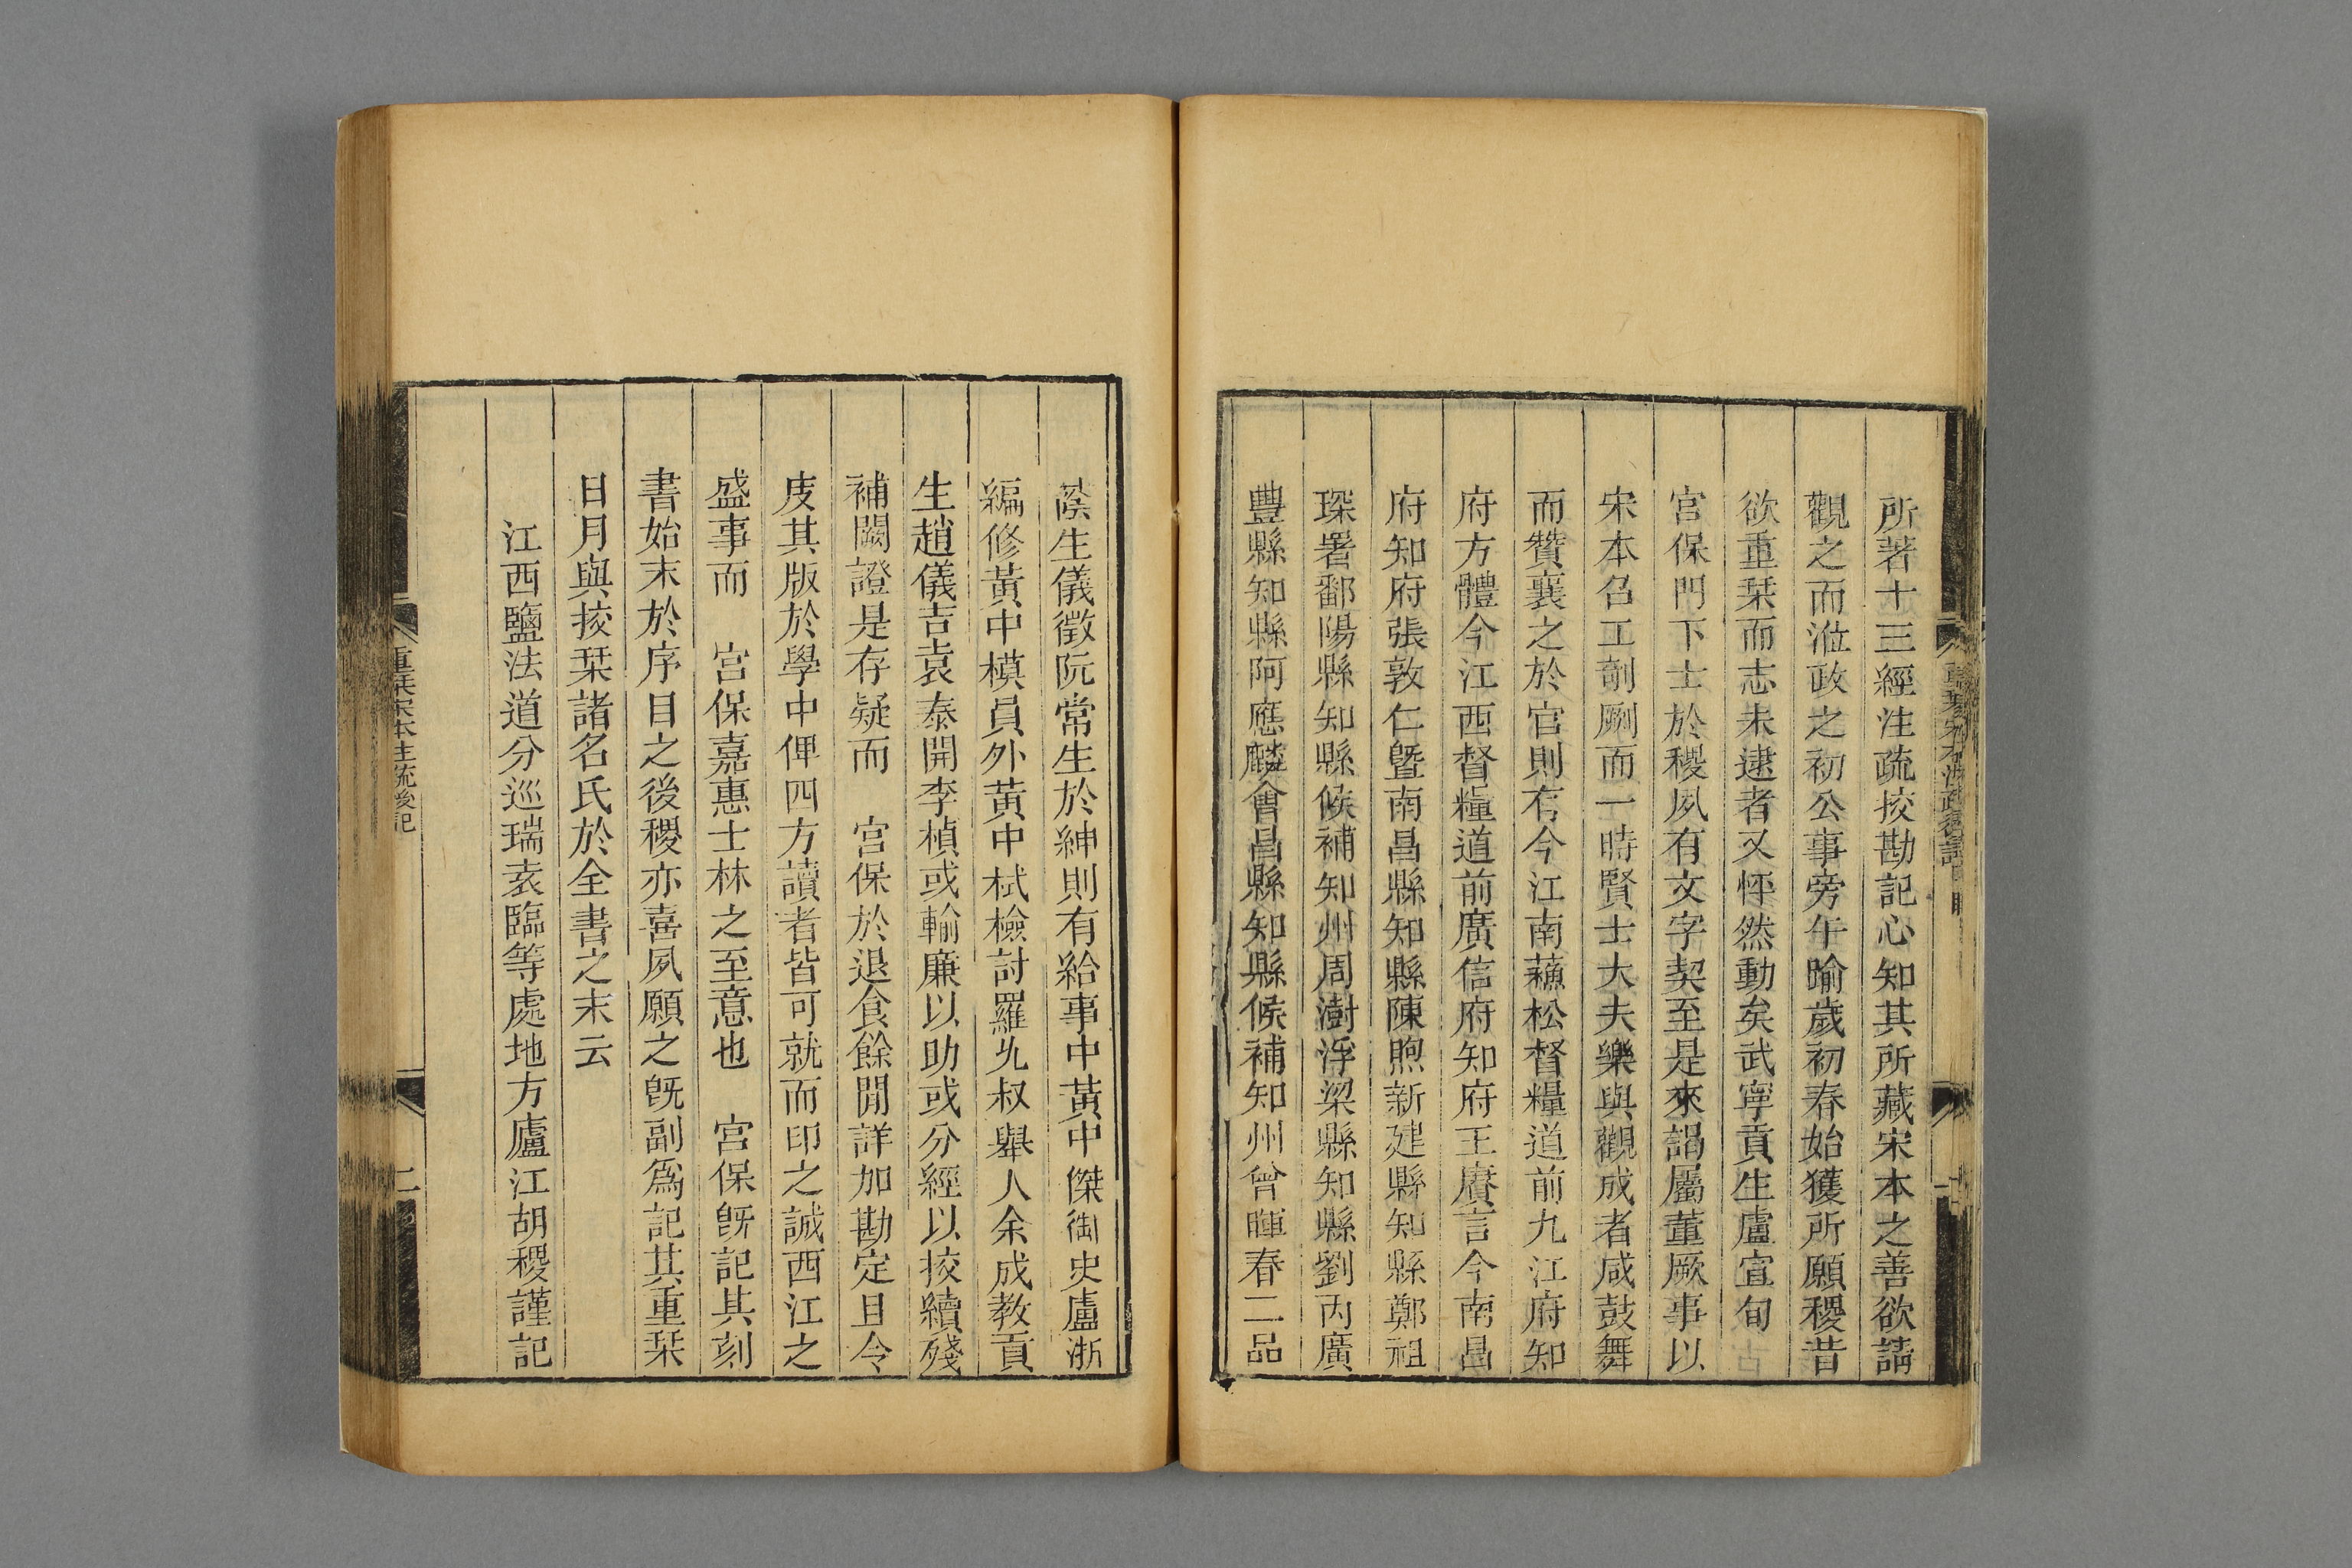 所著十三經注疏挍勘記心知其所藏宋本之善欲請
觀之而涖政之初公事旁午踰歲初春始獲所願稷昔
欲重栞而志未逮者又怦然動矣武寧貢生盧宣旬
宮保門下士於稷夙有文字契至是來謁屬董厥事以
宋本召工剞劂而一時賢士大夫樂與觀成者咸鼓舞
而贊襄之於官則有今江南蘇松督糧道前九江府知
府方體今江西督糧道前廣信府知府王賡言今南昌
府知府張敦仁曁南昌縣知縣陳煦新建縣知縣鄭祖
琛署鄱陽縣知縣候補知州周澍浮梁縣知縣劉丙廣
豐縣知縣阿應麟會昌縣知縣候補知州曾暉春二品
蔭生儀徵阮常生於紳則有給事中黃中傑御史盧浙
編修黃中模員外黃中栻檢討羅允叔舉人余成教貢
生趙儀吉袁泰開李楨或輸廉以助或分經以挍續殘
補闕證是存疑而　宮保於退食餘閒詳加勘定且令
庋其版於學中俾四方讀者皆可就而印之誠西江之
盛事而　宮保嘉惠士林之至意也　宮保旣記其刻
書始末於序目之後稷亦喜夙願之旣副爲記其重栞
日月與挍栞諸名氏於全書之末云
江西鹽法道分巡瑞袁臨等處地方廬江胡稷謹記
重栞宋本注疏後記
二